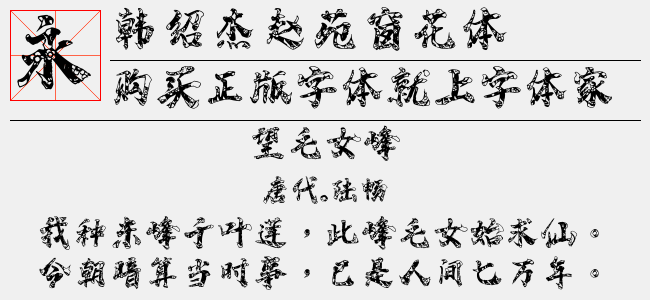 永
韩绍杰赵苑窗花体
购买正版字体就上字体家
望毛女峰
唐代。陆畅
我种东峰千叶莲，此峰毛女始求仙。
今朝暗算当时事，已是人间七万年。